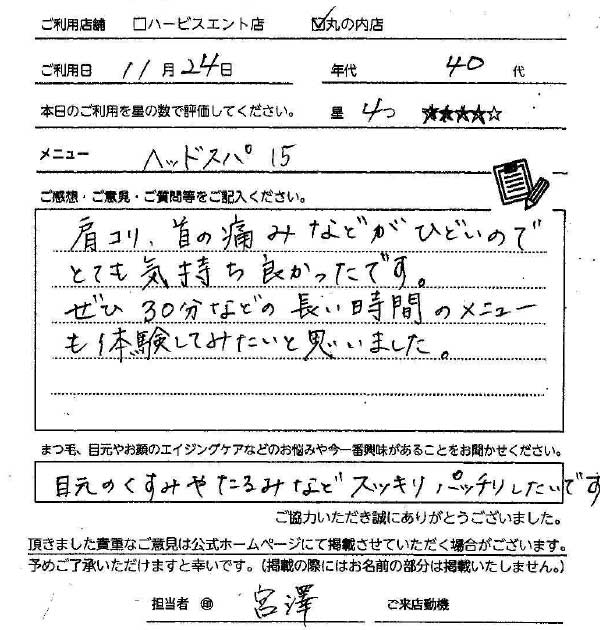 ご利用店舗 □ハービスエント店 ☑丸の内店
ご利用日 11月24日 年代 40代
本日のご利用を星の数で評価してください。 星 4つ ★★★★☆
メニュー ヘッドスパ 15
ご感想・ご意見・ご質問等をご記入ください。
肩コリ、首の痛みなどがひどいので
とても気持ち良かったです。
ぜひ30分などの長い時間のメニュー
も体験してみたいと思いました。
まつ毛、目元やお顔のエイジングケアなどのお悩みや今一番興味があることをお聞かせください。
目元のくすみやたるみなどスッキリパッチリしたいです
ご協力いただき誠にありがとうございました。
頂きました貴重なご意見は公式ホームページにて掲載させていただく場合がございます。
予めご了承いただけますと幸いです。（掲載の際にはお名前の部分は掲載いたしません。）
担当者 ㊞ 宮澤 ご来店動機